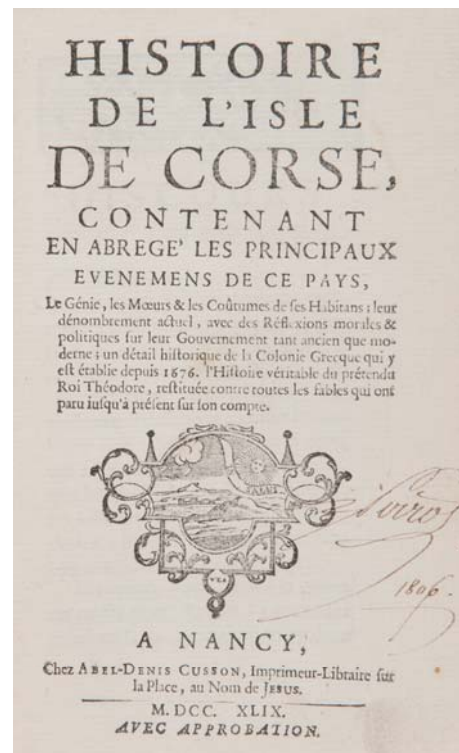 HISTOIRE
DE L'ISLE
DE CORSE,
CONTENANT
EN ABREGE' LES PRINCIPAUX
EVENEMENS DE CE PAYS,
Le Génie, les Mœurs & les Coûtumes de ses Habitans ; leur
dénombrement actuel, avec des Réflexions morales &
politiques sur leur Gouvernement tant ancien que mo-
derne ; un détail historique de la Colonie Grecque qui y
est établie depuis 1676. l'Histoire véritable du prétendu
Roi Théodore, restituée contre toutes les fables qui ont
paru jusqu'à présent sur son compte.
1806.
A NANCY,
Chez ABEL-DENIS CUSSON, Imprimeur-Libraire sur
la Place, au Nom de JESUS.
M. DCC. XLIX.
AVEC APPROBATION.